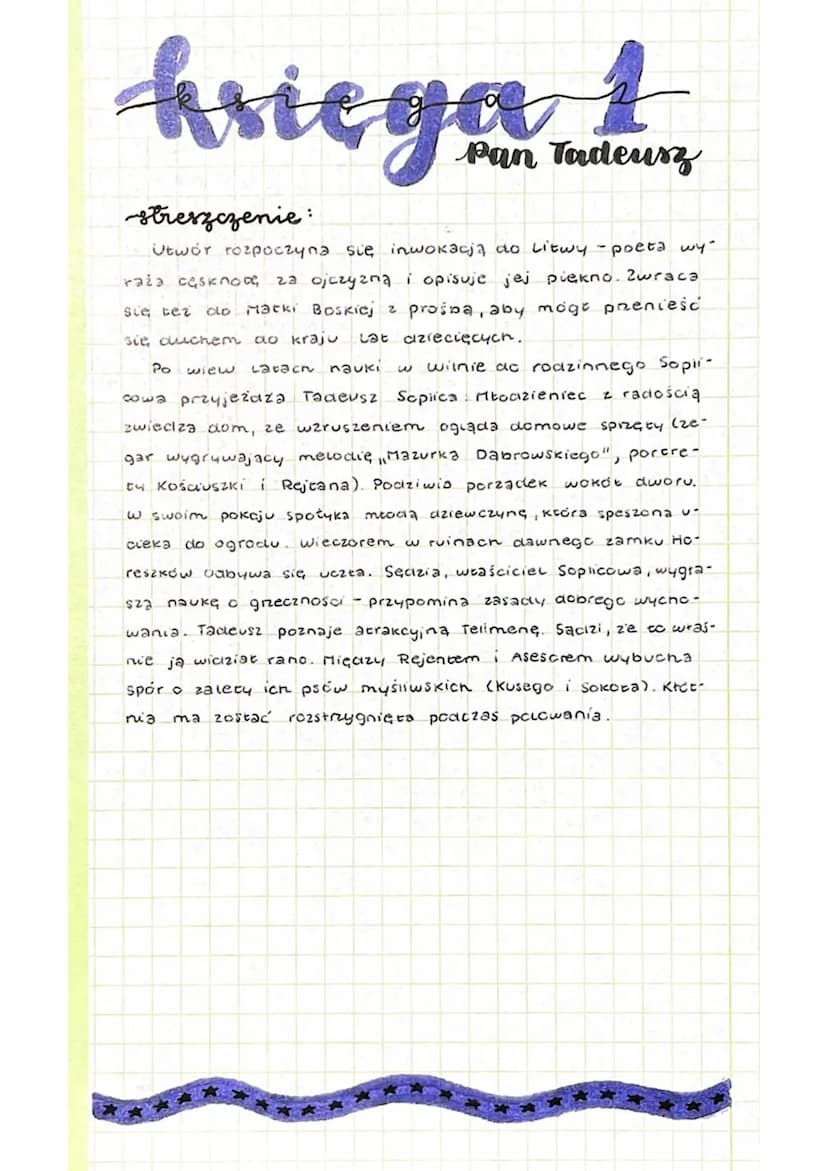 księga 1
księga 1
Pan Tadeusz
streszczenie:
Utwór rozpoczyna się inwokacją do Litwy - poeta wy-
raża tęsknotę za ojczyzną i opisuje jej piękno. Zwraca
się też do Matki Boskiej z prośbą, aby mógł przenieść
się duchem do kraju lat dziecięcych.
Po wielu latach nauki w Wilnie do rodzinnego Sopli-
cowa przyjeżdża Tadeusz Soplica. Młodzieniec z radością
zwiedza dom, ze wzruszeniem ogląda domowe sprzęty (ze-
gar wygrywający melodię „Mazurka Dąbrowskiego", portre-
ty Kościuszki i Rejtana). Podziwia porządek wokół dworu.
W swoim pokoju spotyka młodą dziewczynę, która speszona u-
cieka do ogrodu. Wieczorem w ruinach dawnego zamku Ho-
reszków odbywa się uczta. Sędzia, właściciel Soplicowa, wygła-
sza naukę o grzeczności - przypomina zasady dobrego wycho-
wania. Tadeusz poznaje atrakcyjną Telimenę. Sądzi, że to właś-
nie ją widział rano. Między Rejentem i Asesorem wybucha
spór o zalety ich psów myśliwskich (Kusego i Sokoła). Kłót-
nia ma zostać rozstrzygnięta podczas polowania.